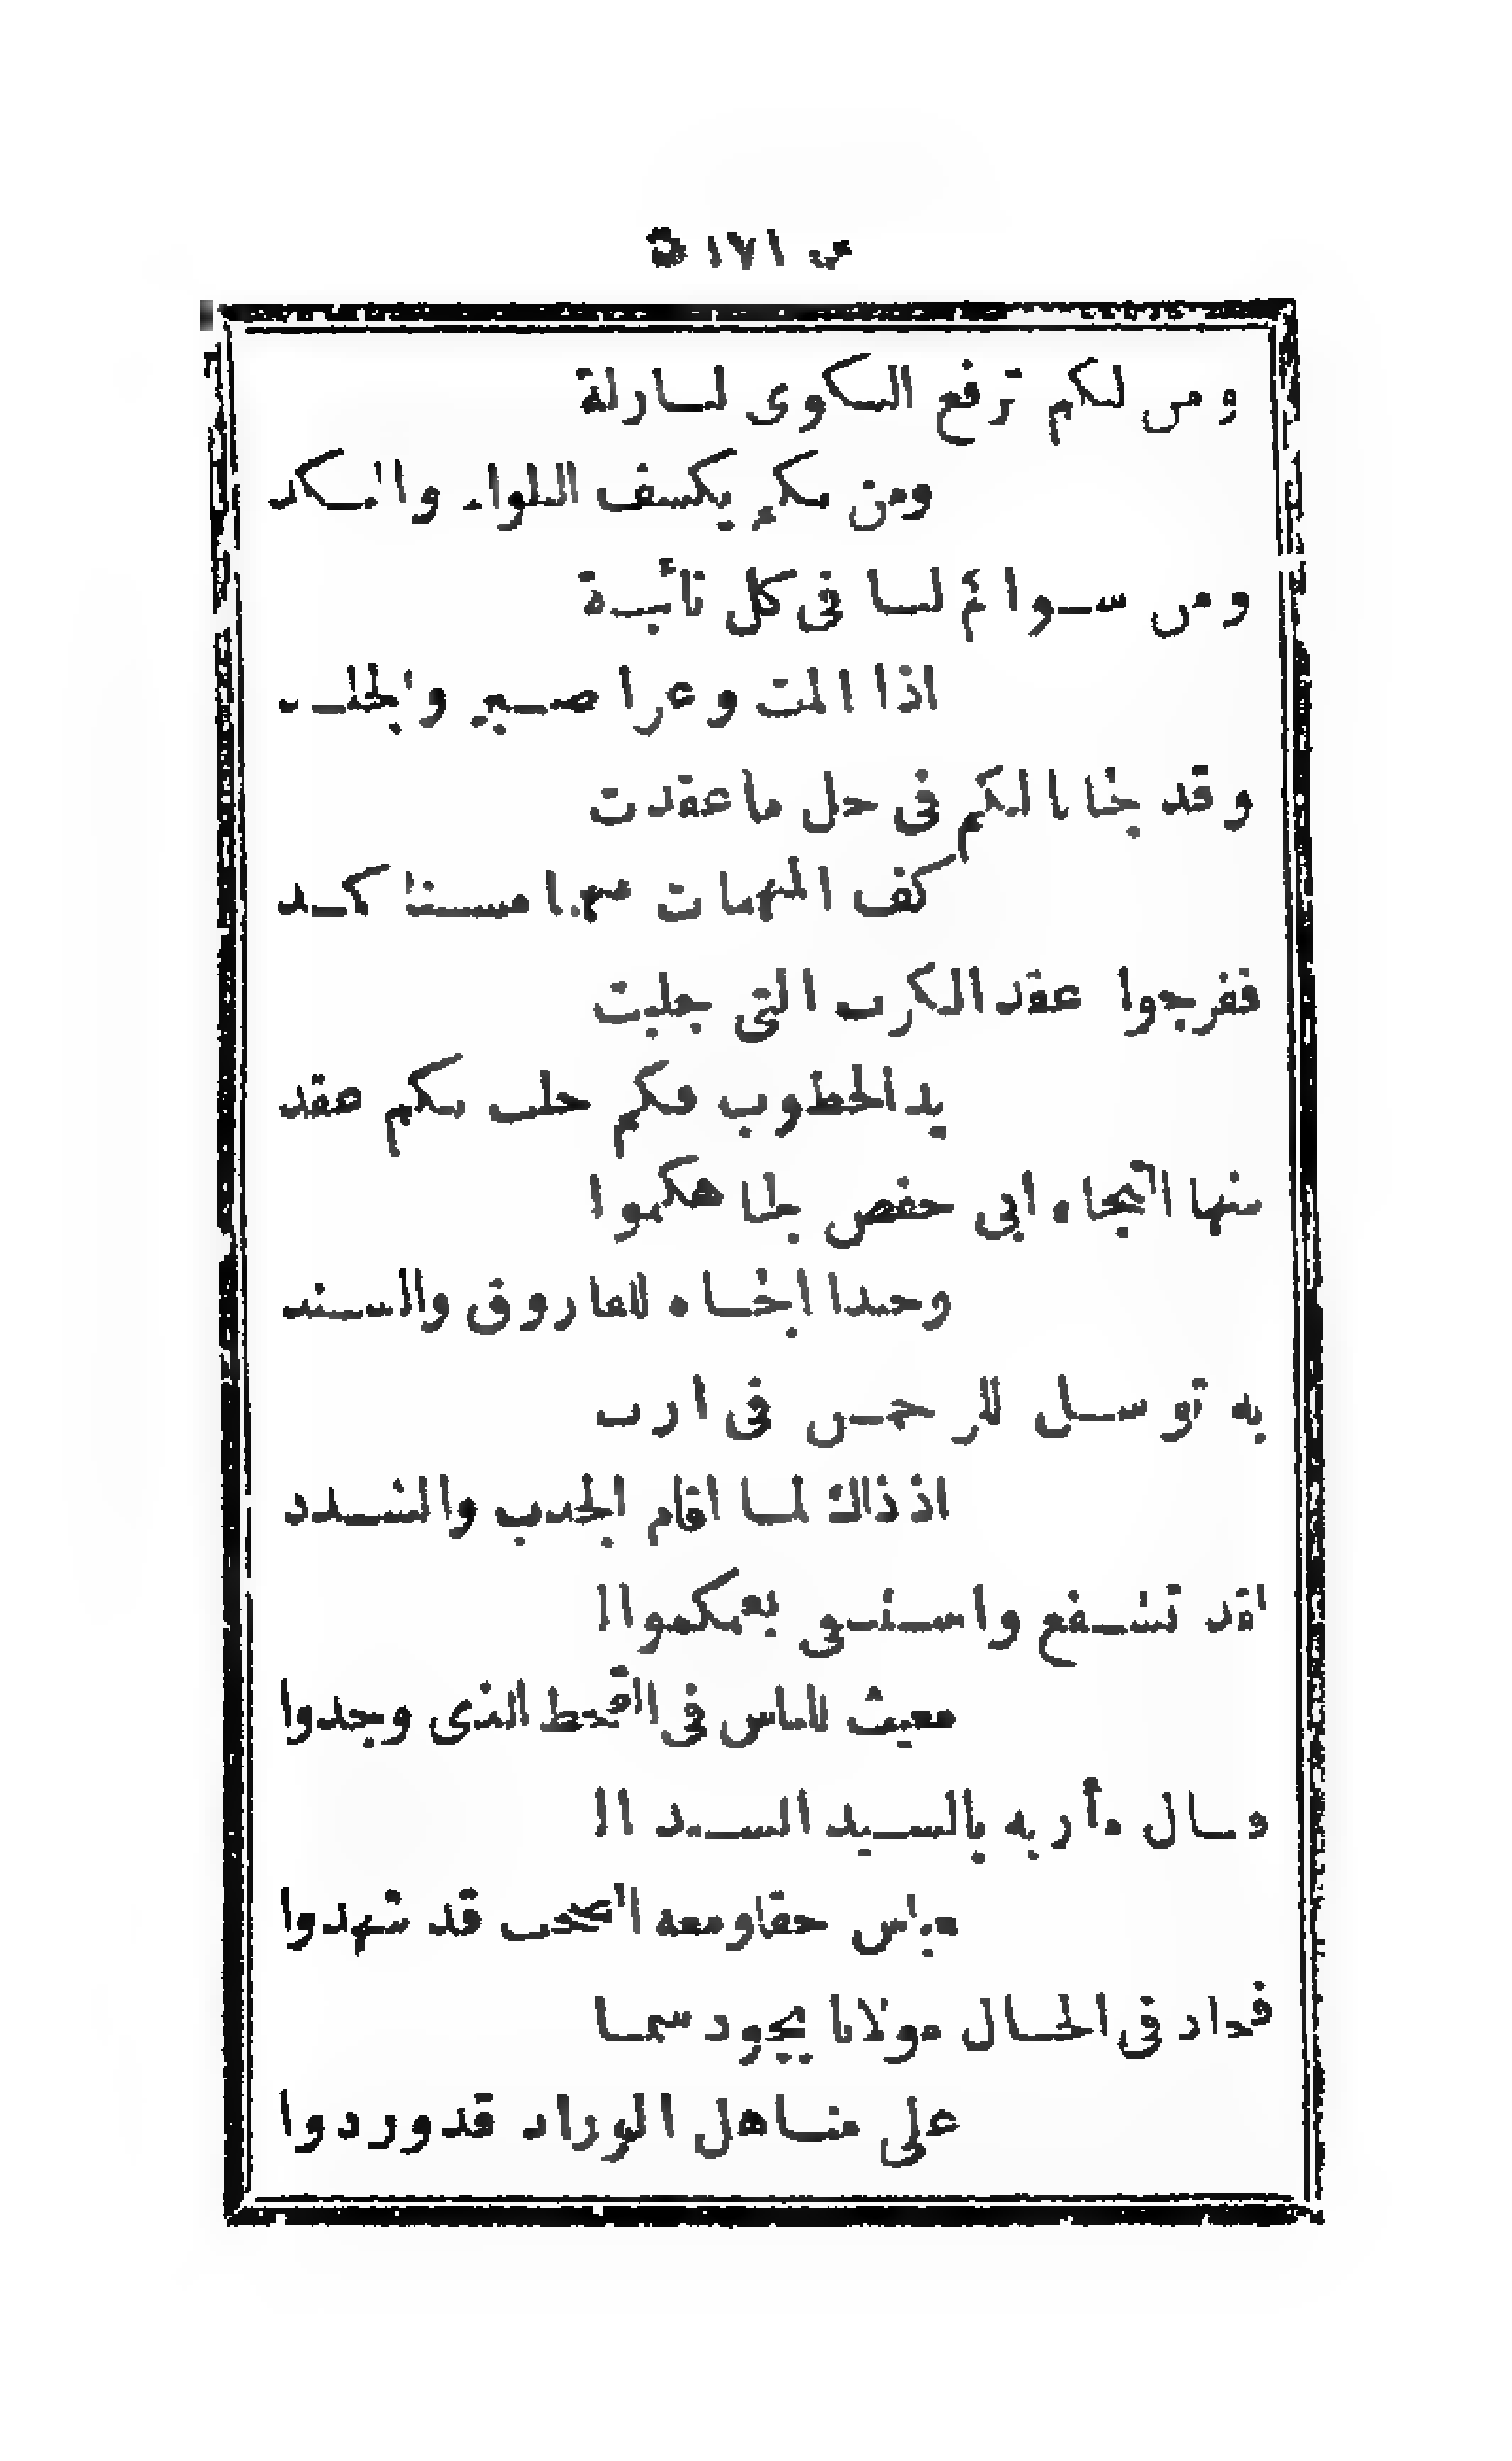 ١٧١
ومن لكم ترفع الشكوى لنازلة
ومن بكم يكشف اللواء والنكد
ومن سوائم لنا فى كل نائبة
اذا المت وعرا صبر والجلد
وقد لجانا لكم فى حل ما عقدت
كف الملمات مهما مسنا كد
ففرجوا عقد الكرب التى جلبت
يد الخطوب فكم حلت بكم عقد
منها التجاه ابى حفص لجاهكموا
وحبذا الجاه للفاروق والسند
به توسل للرحمن فى ارب
اذ ذاك لما اقام الجدب والشدد
لقد تشفع واستسقى بعمكموا ال
مغيث للناس فى القحط الذى وجدوا
ونال مأربه بالسيد السند ال
عباس حقا ومعه الصحب قد شهدوا
فجاد فى الحال مولانا بجود سما
على مناهل الوراد قد وردوا